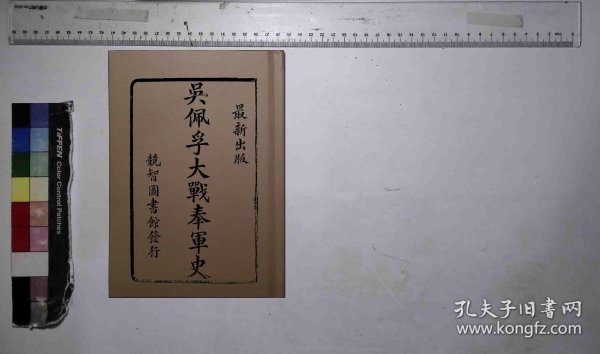 最新出版
吳佩孚大戰奉軍史
競智圖書館發行
TIFFEN Color Control Patches
孔夫子旧书网
www.kongfz.com